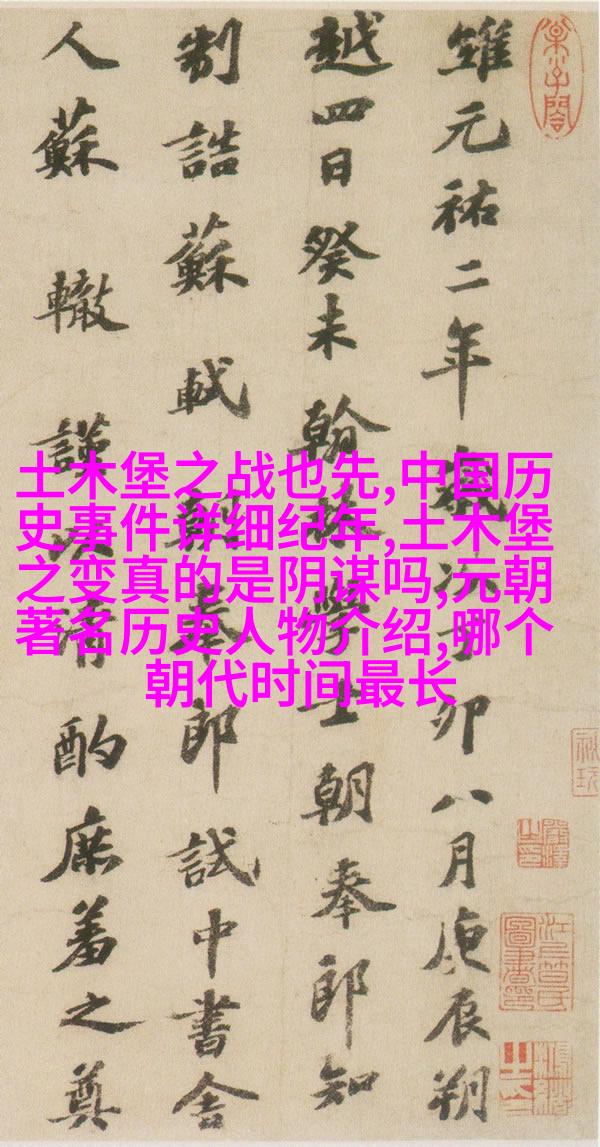 維元祐二年歲次丁卯八月庚辰朔
越四日癸未翰林學士朝奉郎知
制誥蘇軾朝奉郎試中書舍
人蘇轍謹以清酌庶羞之奠
土木堡之战也先,中国历
史事件详细纪年,土木堡
之变真的是阴谋吗,元朝
著名历史人物介绍,哪个
朝代时间最长